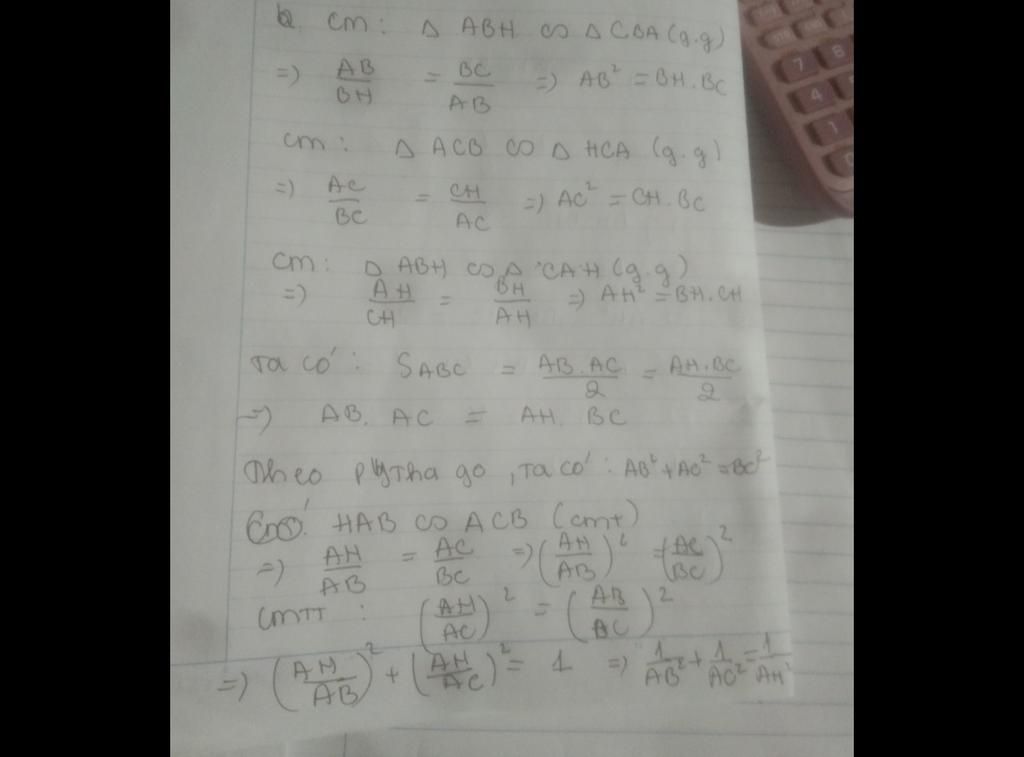 b, cm: Δ ABH ∽ Δ CBA (g.g)
=> AB/BH = BC/AB => AB² = BH.BC
cm: Δ ACB ∽ Δ HCA (g.g)
=> AC/BC = CH/AC => AC² = CH.BC
cm: Δ ABH ∽ Δ CAH (g.g)
=> AH/CH = BH/AH => AH² = BH.CH
Ta có: SABC = AB.AC/2 = AH.BC/2
=> AB. AC = AH. BC
Theo Pytha go, ta có: AB² + AC² = BC²
HAB ∽ ACB (cmt)
=> AH/AB = AC/BC => (AH/AB)² = (AC/BC)²
cmtt: (AH/AC)² = (AB/BC)²
=> (AH/AB)² + (AH/AC)² = 1 => 1/AB² + 1/AC² = 1/AH²
7 8
4
1
0